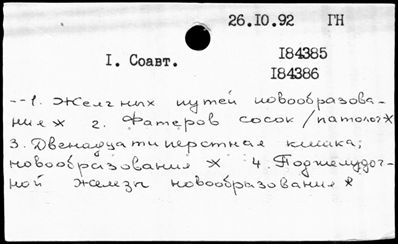 26.10.92 ГН
I84385
I. Соавт.
I84386
--1. Желчных путей новообразова-
ния * 2. Фатеров сосок /патолог*
3. Двенадцатиперстная кишка;
новообразования * 4. Поджелудоч-
ной железы новообразования *